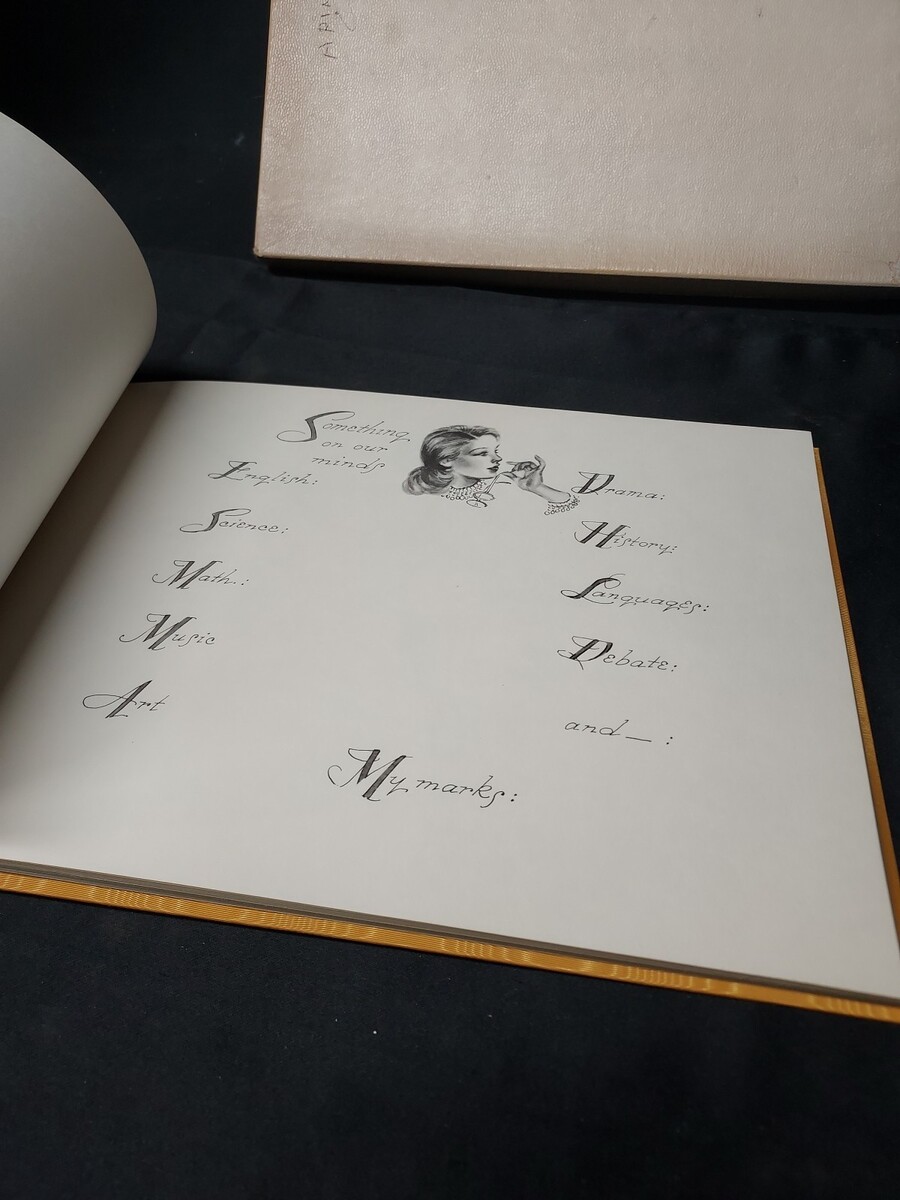 Something
on our
minds
English:
Science:
Math.:
Music
Art
Drama:
History:
Languages:
Debate:
and_:
My marks: